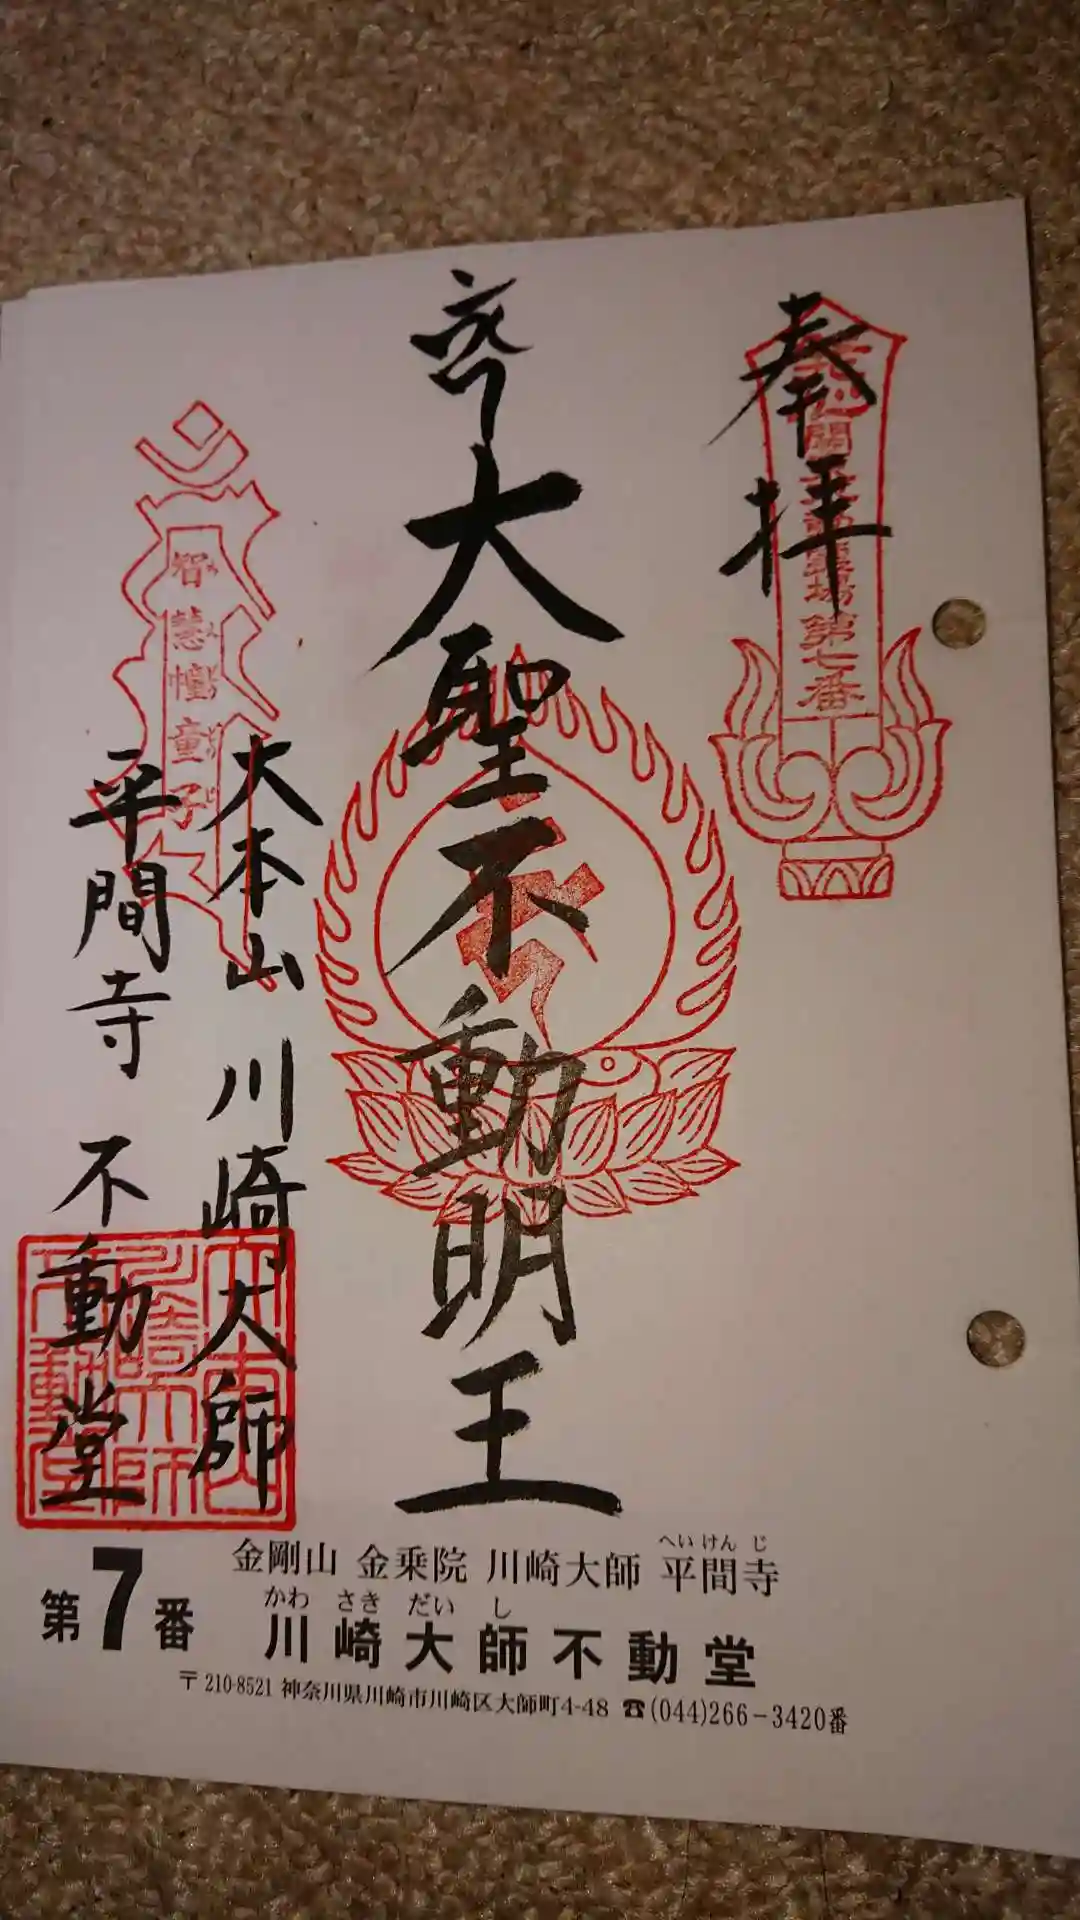 奉拝
関東不動霊場第七番
大聖不動明王
大本山 川崎大師
平間寺 不動堂
智慧幢童子
金剛山 金乗院 川崎大師 平間寺
へいけんじ
第7番
川崎大師不動堂
かわさきだいし
〒210-8521 神奈川県川崎市川崎区大師町4-48 ☎(044)266-3420番